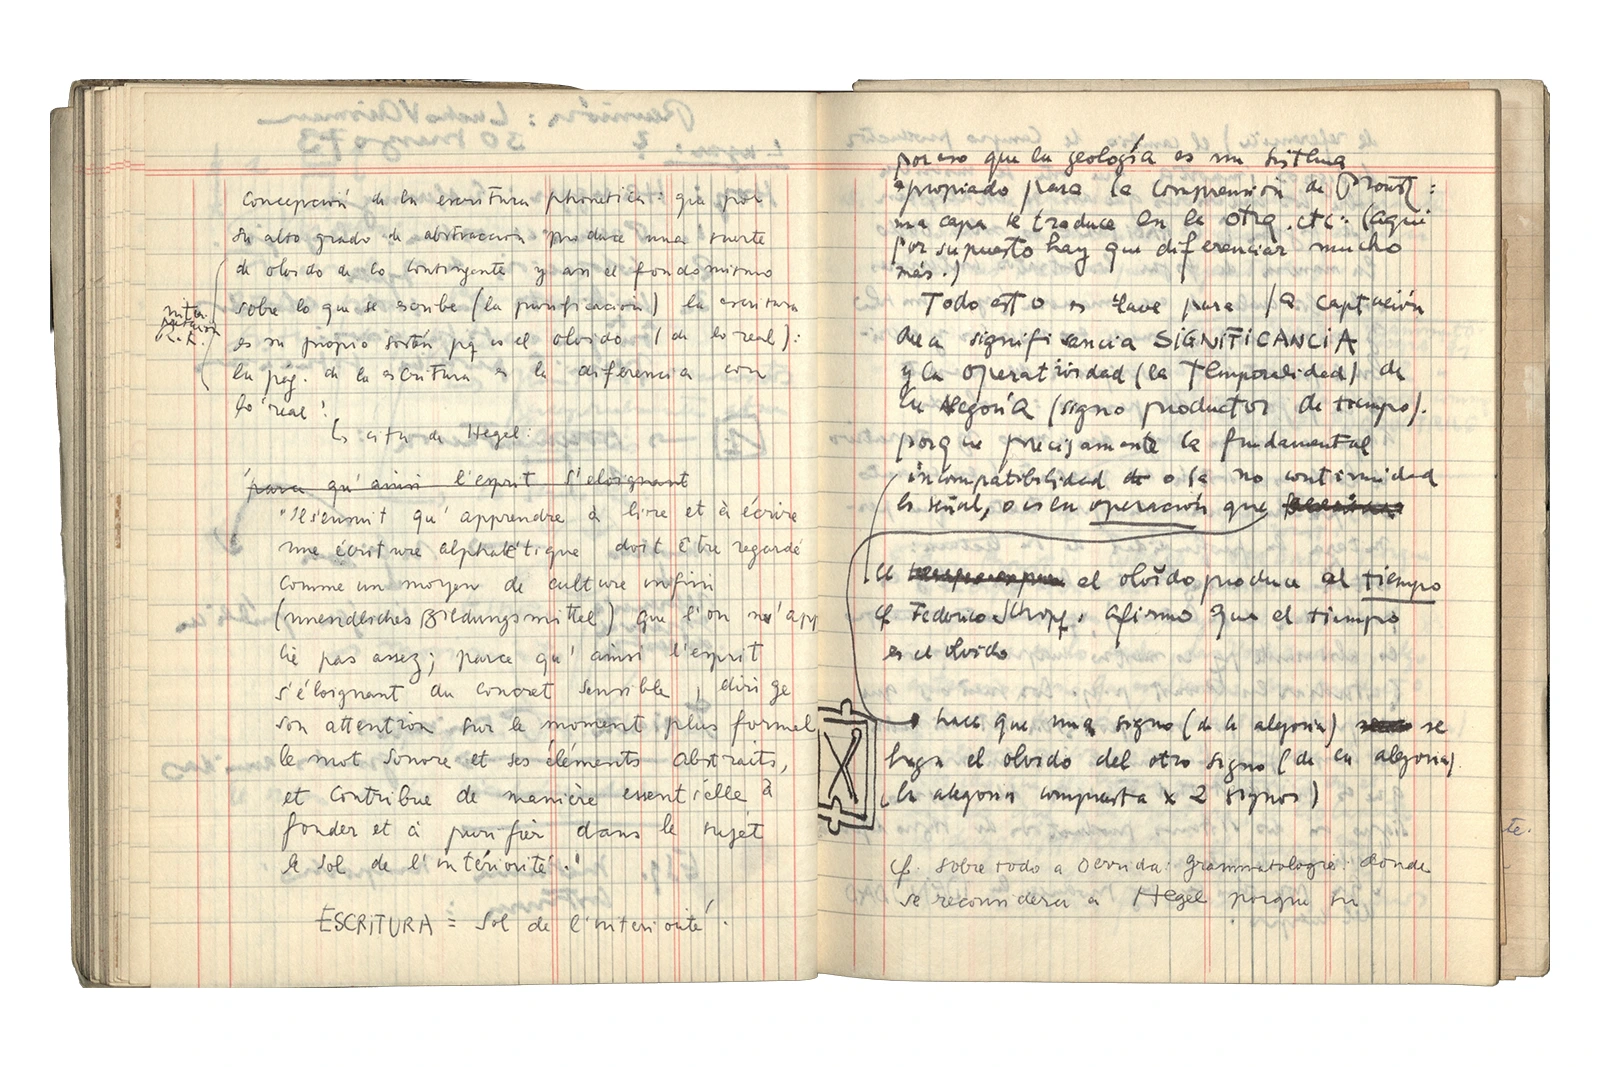 Concepción de la escritura phonética: que por
su alto grado de abstracción produce una suerte
de olvido de lo contingente y así el fondo mismo
sobre lo que se escribe (la purificación) la escritura
es su propio sostén pq es el olvido (de lo real):
la pág. de la escritura es la diferencia con
lo real!
inter-
pretación
R.K.
Es cita de Hegel:
parce qu'ainsi l'esprit s'eloignant
"Il s'ensuit qu'apprendre à lire et à écrire
une écriture alphabétique doit être regardé
comme un moyen de culture infini
(unendliches Bildungsmittel) que l'on n'app
cie pas assez; parce qu'ainsi l'esprit
s'éloignant du concret sensible, dirige
son attention sur le moment plus formel
le mot sonore et ses éléments abstraits,
et contribue de manière essentielle à
fonder et à purifier dans le sujet
le sol de l'intériorité.'
ESCRITURA = sol de l'interiorité.
por eso que la geología es un sistema
apropiado para la comprensión de Proust:
una capa se traduce en la otra, etc: (aquí
por supuesto hay que diferenciar mucho
más.)
Todo esto es clave para la captación
de la significancia SIGNIFICANCIA
y la operatividad (la Temporalidad) de
la Alegoría (signo productor de tiempo).
porque precisamente la fundamental
incompatibilidad o la no continuidad
es señal, o es en operación que
el el olvido produce el tiempo
cf Federico Schopf, afirmo que el tiempo
es el olvido
hace que una signo (de la alegoría) se
haga el olvido del otro signo (de la alegoría)
(la alegoría compuesta x 2 signos)
cf. sobre todo a Derrida: Grammatologie: donde
se reconsidera a Hegel porque su
te.